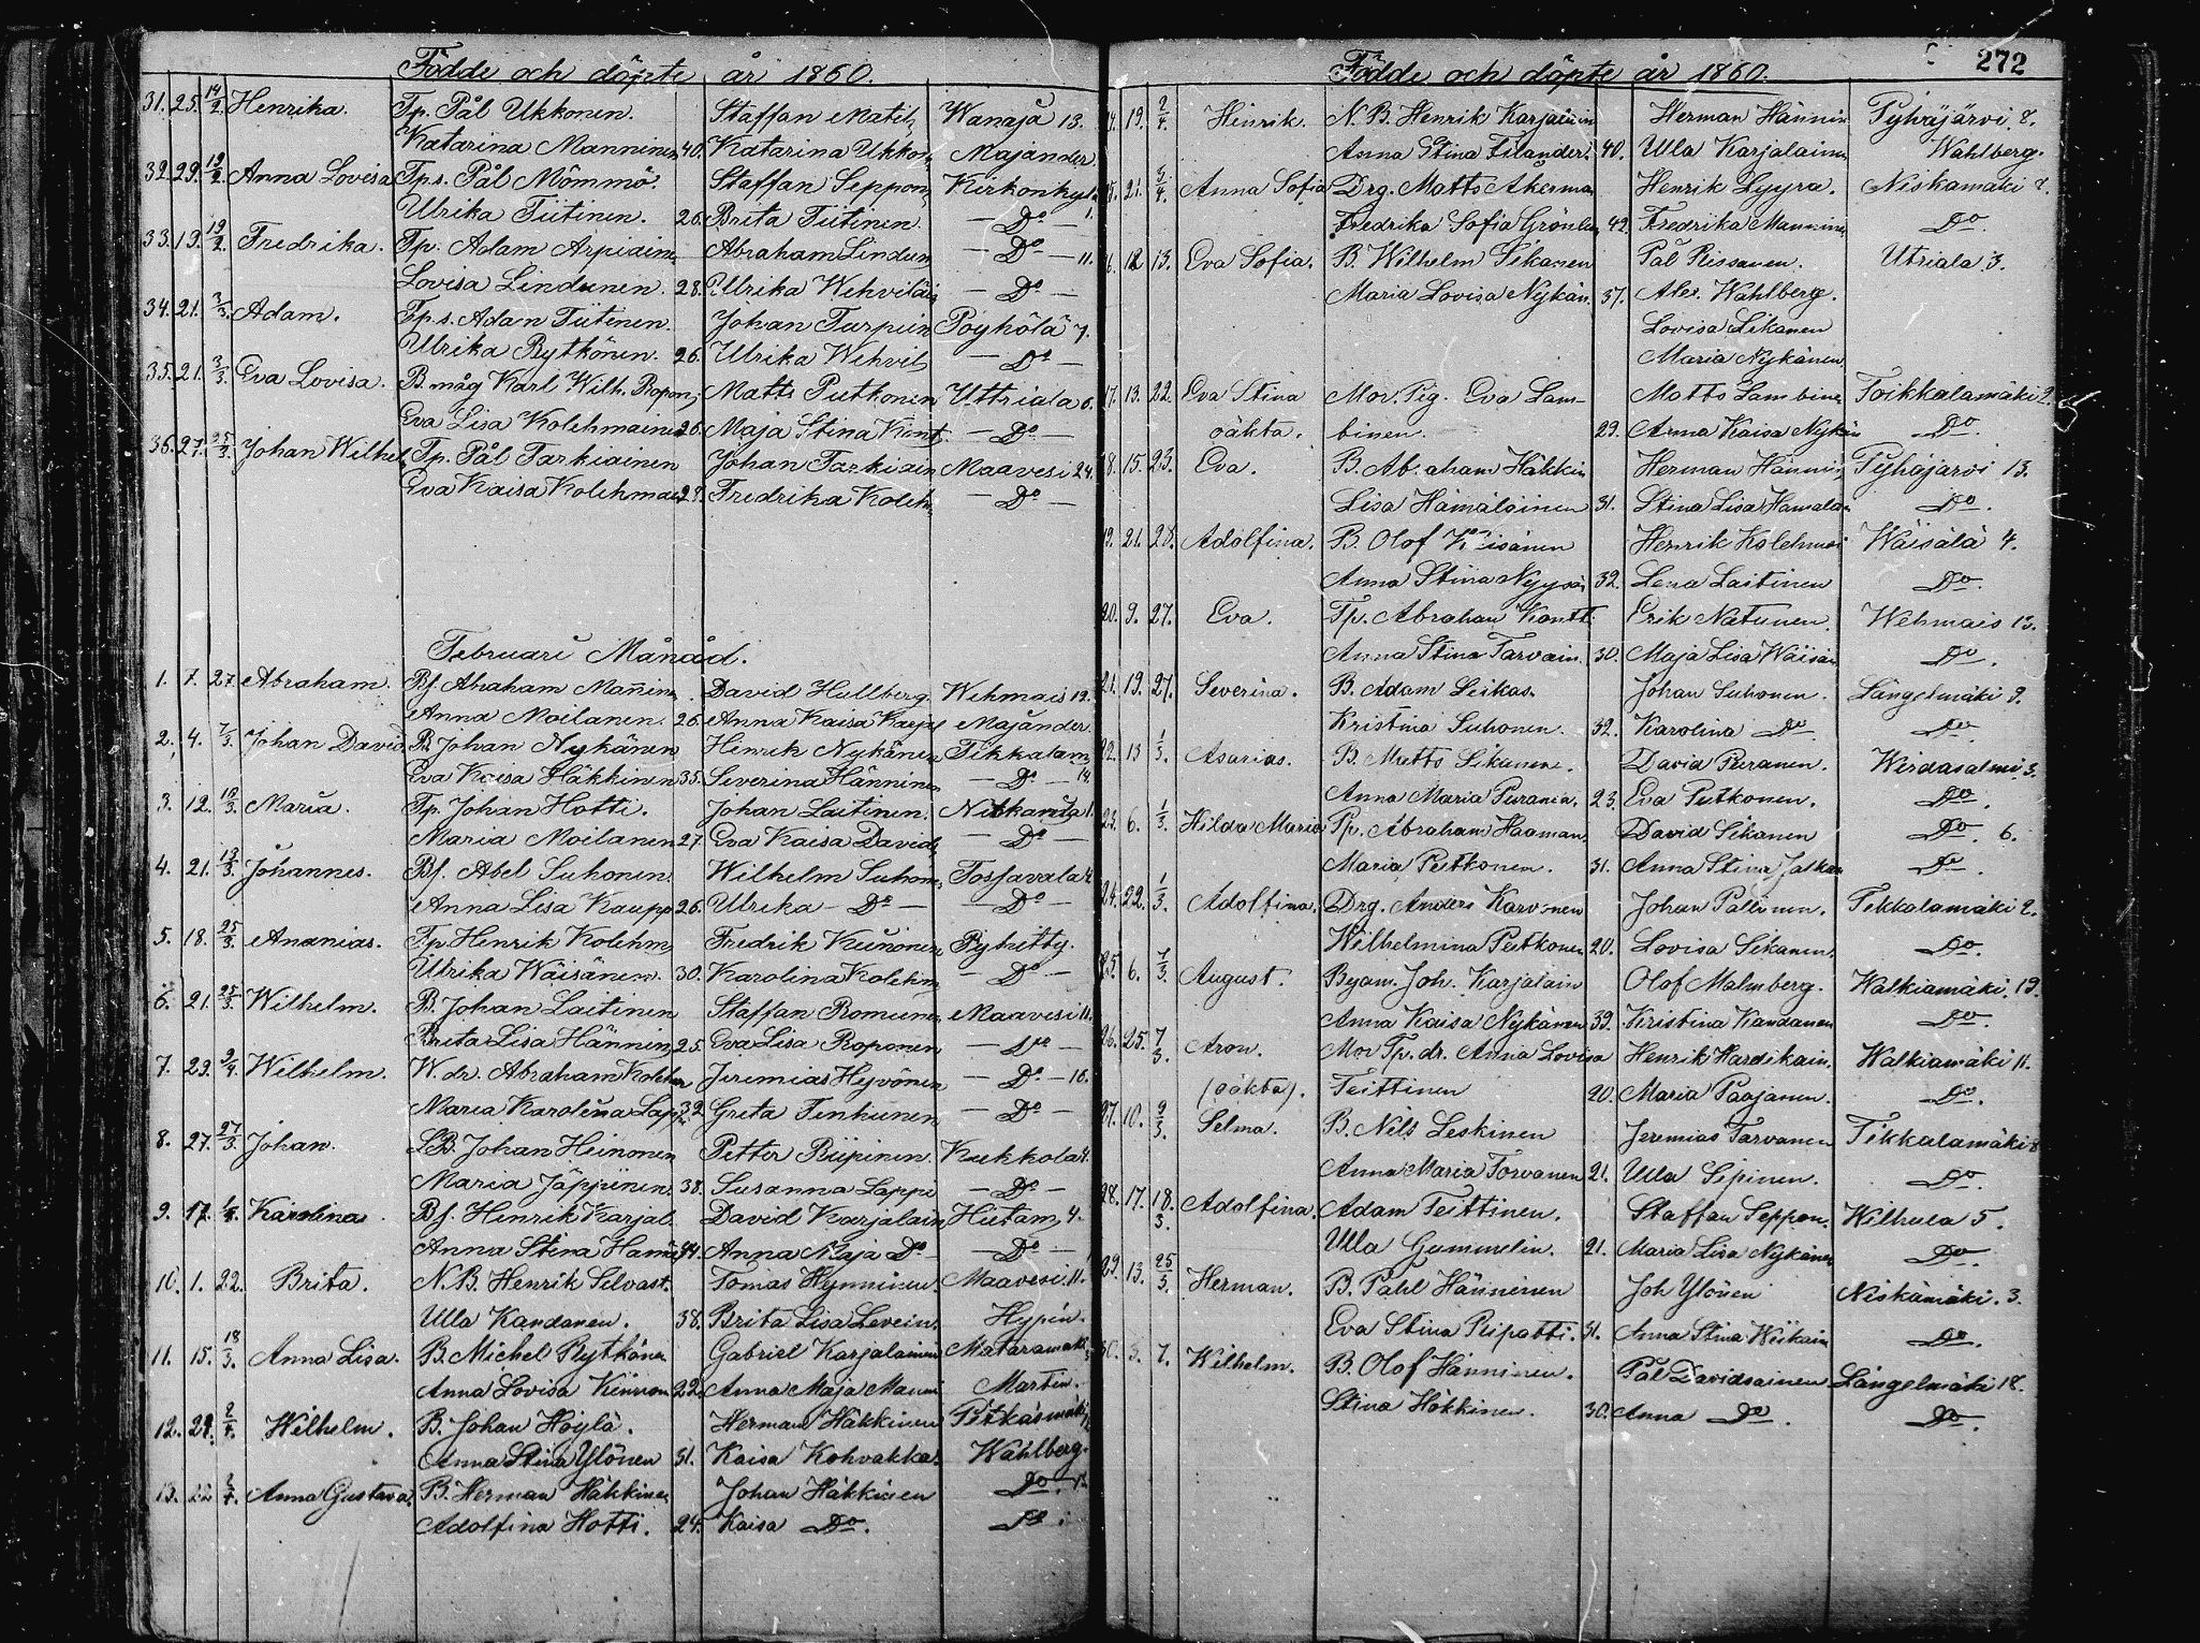 Födde och döpte år 1860.
31. 25. 14/2 Henrika. Tp. Pål Ukkonen. Staffan Matil, Wanaja 13.
Katarina Manninen 40. Katarina Ukkon, Majander.
32. 29. 19/2 Anna Lovisa Tp.s. Pål Mömmö. Staffan Seppon, Kirkonkylä
Ulrika Tiitinen. 26. Brita Tiitinen. — Do — 1.
33. 19. 19/2 Fredrika. Tp. Adam Arpiain, Abraham Lindun, — Do — 11.
Lovisa Lindunen. 28. Ulrika Wehviläi, — Do —
34. 21. 3/3 Adam. Tp.s. Adam Tiitinen. Johan Turpein Pöyhölä 7.
Ulrika Rytkönen. 26. Ulrika Wehvil, — Do —
35. 21. 3/3 Eva Lovisa. B. måg Karl Wilh. Ropon, Matts Putkonen Uttriala 6.
Eva Lisa Kolehmainen 26. Maja Stina Kant — Do —
36. 27. 25/3 Johan Wilhel, Tp. Pål Tarkiainen Johan Tarkiain Maavesi 24.
Eva Kaisa Kolehmai 29. Fredrika Koleh, — Do —
Februari Månad.
1. 7. 27. Abraham. Bf. Abraham Mannin, David Hallberg. Wehmais 19.
Anna Moilanen. 26. Anna Kaisa Karjal Majander.
2. 4. 7/3. Johan David B. Johan Nykänen Henrik Nykänen Tikkalam,
Eva Kaisa Häkkinen 35. Severina Hänninen — Do — 14.
3. 12. 18/3. Maria. Tp. Johan Hotti. Johan Laitinen. 1.
Maria Moilanen 27. Eva Kaisa David, — Do —
4. 21. 18/3. Johannes. Bf. Abel Suhonen. Wilhelm Suhon, Tosjavala
Anna Lisa Kaupp 26. Ulrika — Do — — Do —
5. 18. 25/3. Ananias. Tp. Henrik Kolehm, Fredrik Keinonen Pyhitty.
Ulrika Wäisänen. 30. Karolina Kolehm, — Do —
6. 21. 25/3. Wilhelm. B. Johan Laitinen Staffan Romunen Maavesi 11.
Brita Lisa Hännin, 25. Eva Lisa Roponen — Do —
7. 29. 9/4. Wilhelm. W. dr. Abraham Kolehm Jeremias Hyvönen — Do — 16.
Maria Karolina Lap, 32 Greta Tenhunen — Do —
8. 27. 27/3. Johan. LB. Johan Heinonen Petter Piipinen. Kukkola 4.
Maria Jäppinen. 38. Susanna Lappi — Do —
9. 17. Karolina. Bf. Henrik Karjal. David Karjalain Hietam, 4.
Anna Stina Hämä 44. Anna Maja Do — Do —
10. 1. 22. Brita. N.B. Henrik Silvast. Tomas Hynninen. Maavesi 11.
Ulla Kandanen. 38. Brita Lisa Levein. Hypén.
11. 15. 18/3. Anna Lisa. B. Michel Rytköne Gabriel Karjalainen Mataramäki
Anna Lovisa Keinon 22. Anna Maja Manni Martin.
12. 29. 2/4. Wilhelm. B. Johan Höylä. Herman Häkkinen Pitkäsmäki
Anna Stina Ylönen 31. Kaisa Kohvakka. Wahlberg.
13. 22 2/4. Anna Gustava, B. Herman Häkkinen Johan Häkkinen Do. 12
Adolfina Hotti. 24. Kaisa Do. Do
Födde och döpte år 1860. 272
14. 19. 2/4. Henrik. N. B. Henrik Karjalain Herman Hännin Pyhäjärvi. 8.
Anna Stina Filander. 40. Ulla Karjalainen Wahlberg.
15. 21. 3/4. Anna Sofia Drg. Matts Åkerman Henrik Lyyra. Niskamäki 2.
Fredrika Sofia Grönlun 42. Fredrika Manninen Do.
16. 12 13. Eva Sofia. B. Wilhelm Sikanen Pål Rissanen. Utriala 3.
Maria Lovisa Nykän. 37. Alex. Wahlberg.
Lovisa Sikanen
Maria Nykänen.
17. 13. 22. Eva Stina Mor. Pig. Eva Lam- Matts Lambinen Toikkalamäki 2.
oäkta. binen. 29. Anna Kaisa Nykän Do.
18. 15. 23. Eva. B. Abraham Häkkin Herman Hännin, Pyhäjärvi 13.
Lisa Hämäläinen 31. Stina Lisa Hämälä Do.
19. 21. 28. Adolfina. B. Olof Wäisänen Henrik Kolehmai Wäisälä 4.
Anna Stina Nyyssö 32. Lena Laitinen Do.
20. 9. 27. Eva. Tp. Abraham Kantt. Erik Natunen. Wehmais 13.
Anna Stina Tarvain. 30. Maja Lisa Wäisän Do.
21. 19. 27. Severina. B. Adam Leikas. Johan Suhonen. Längelmäki 9.
Kristina Suhonen. 32. Karolina Do. Do.
22. 13 1/3. Asarias. B. Matts Sikanen. David Puranen. Wirdasalmi 3.
Anna Maria Purania. 23. Eva Peitkonen. Do.
23. 6. 1/3. Hilda Maria Tp. Abraham Haaman. David Sikanen Do. 6.
Maria Peitkonen. 31. Anna Stina Jalkan Do.
24. 22. 1/3. Adolfina. Drg. Anders Karvonen Johan Pallinen. Tikkalamäki 2.
Wilhelmina Peitkonen 20. Lovisa Sikanen. Do.
25. 6. 7/3. August. Byam. Joh. Karjalain Olof Malmberg. Walkiamäki. 19.
Anna Kaisa Nykänen 39. Kristina Kandanen Do.
26. 25. 7/3. Aron. Mor Tp. dr. Anna Lovisa Henrik Hardikain. Walkiamäki 11.
(oäkta). Teittinen 20. Maria Paajanen. Do.
27. 10. 9/3. Selma. B. Nils Leskinen Jeremias Tarvanen Tikkalamäki 8
Anna Maria Torvanen 21. Ulla Sipinen. Do.
28. 17. 18/3. Adolfina. Adam Teittinen. Staffan Seppon. Wilhula 5.
Ulla Gummelin. 21. Maria Lisa Nykänen Do.
29. 13. 25/3. Herman. B. Pahl Hänninen Joh Ylönen Niskamäki. 3.
Eva Stina Ripatti. 31. Anna Stina Weikain Do.
30. 3. 7. Wilhelm. B. Olof Hänninen. Pål Davidsainen Längelmäki 18.
Stina Häkkinen. 30. Anna Do. Do.